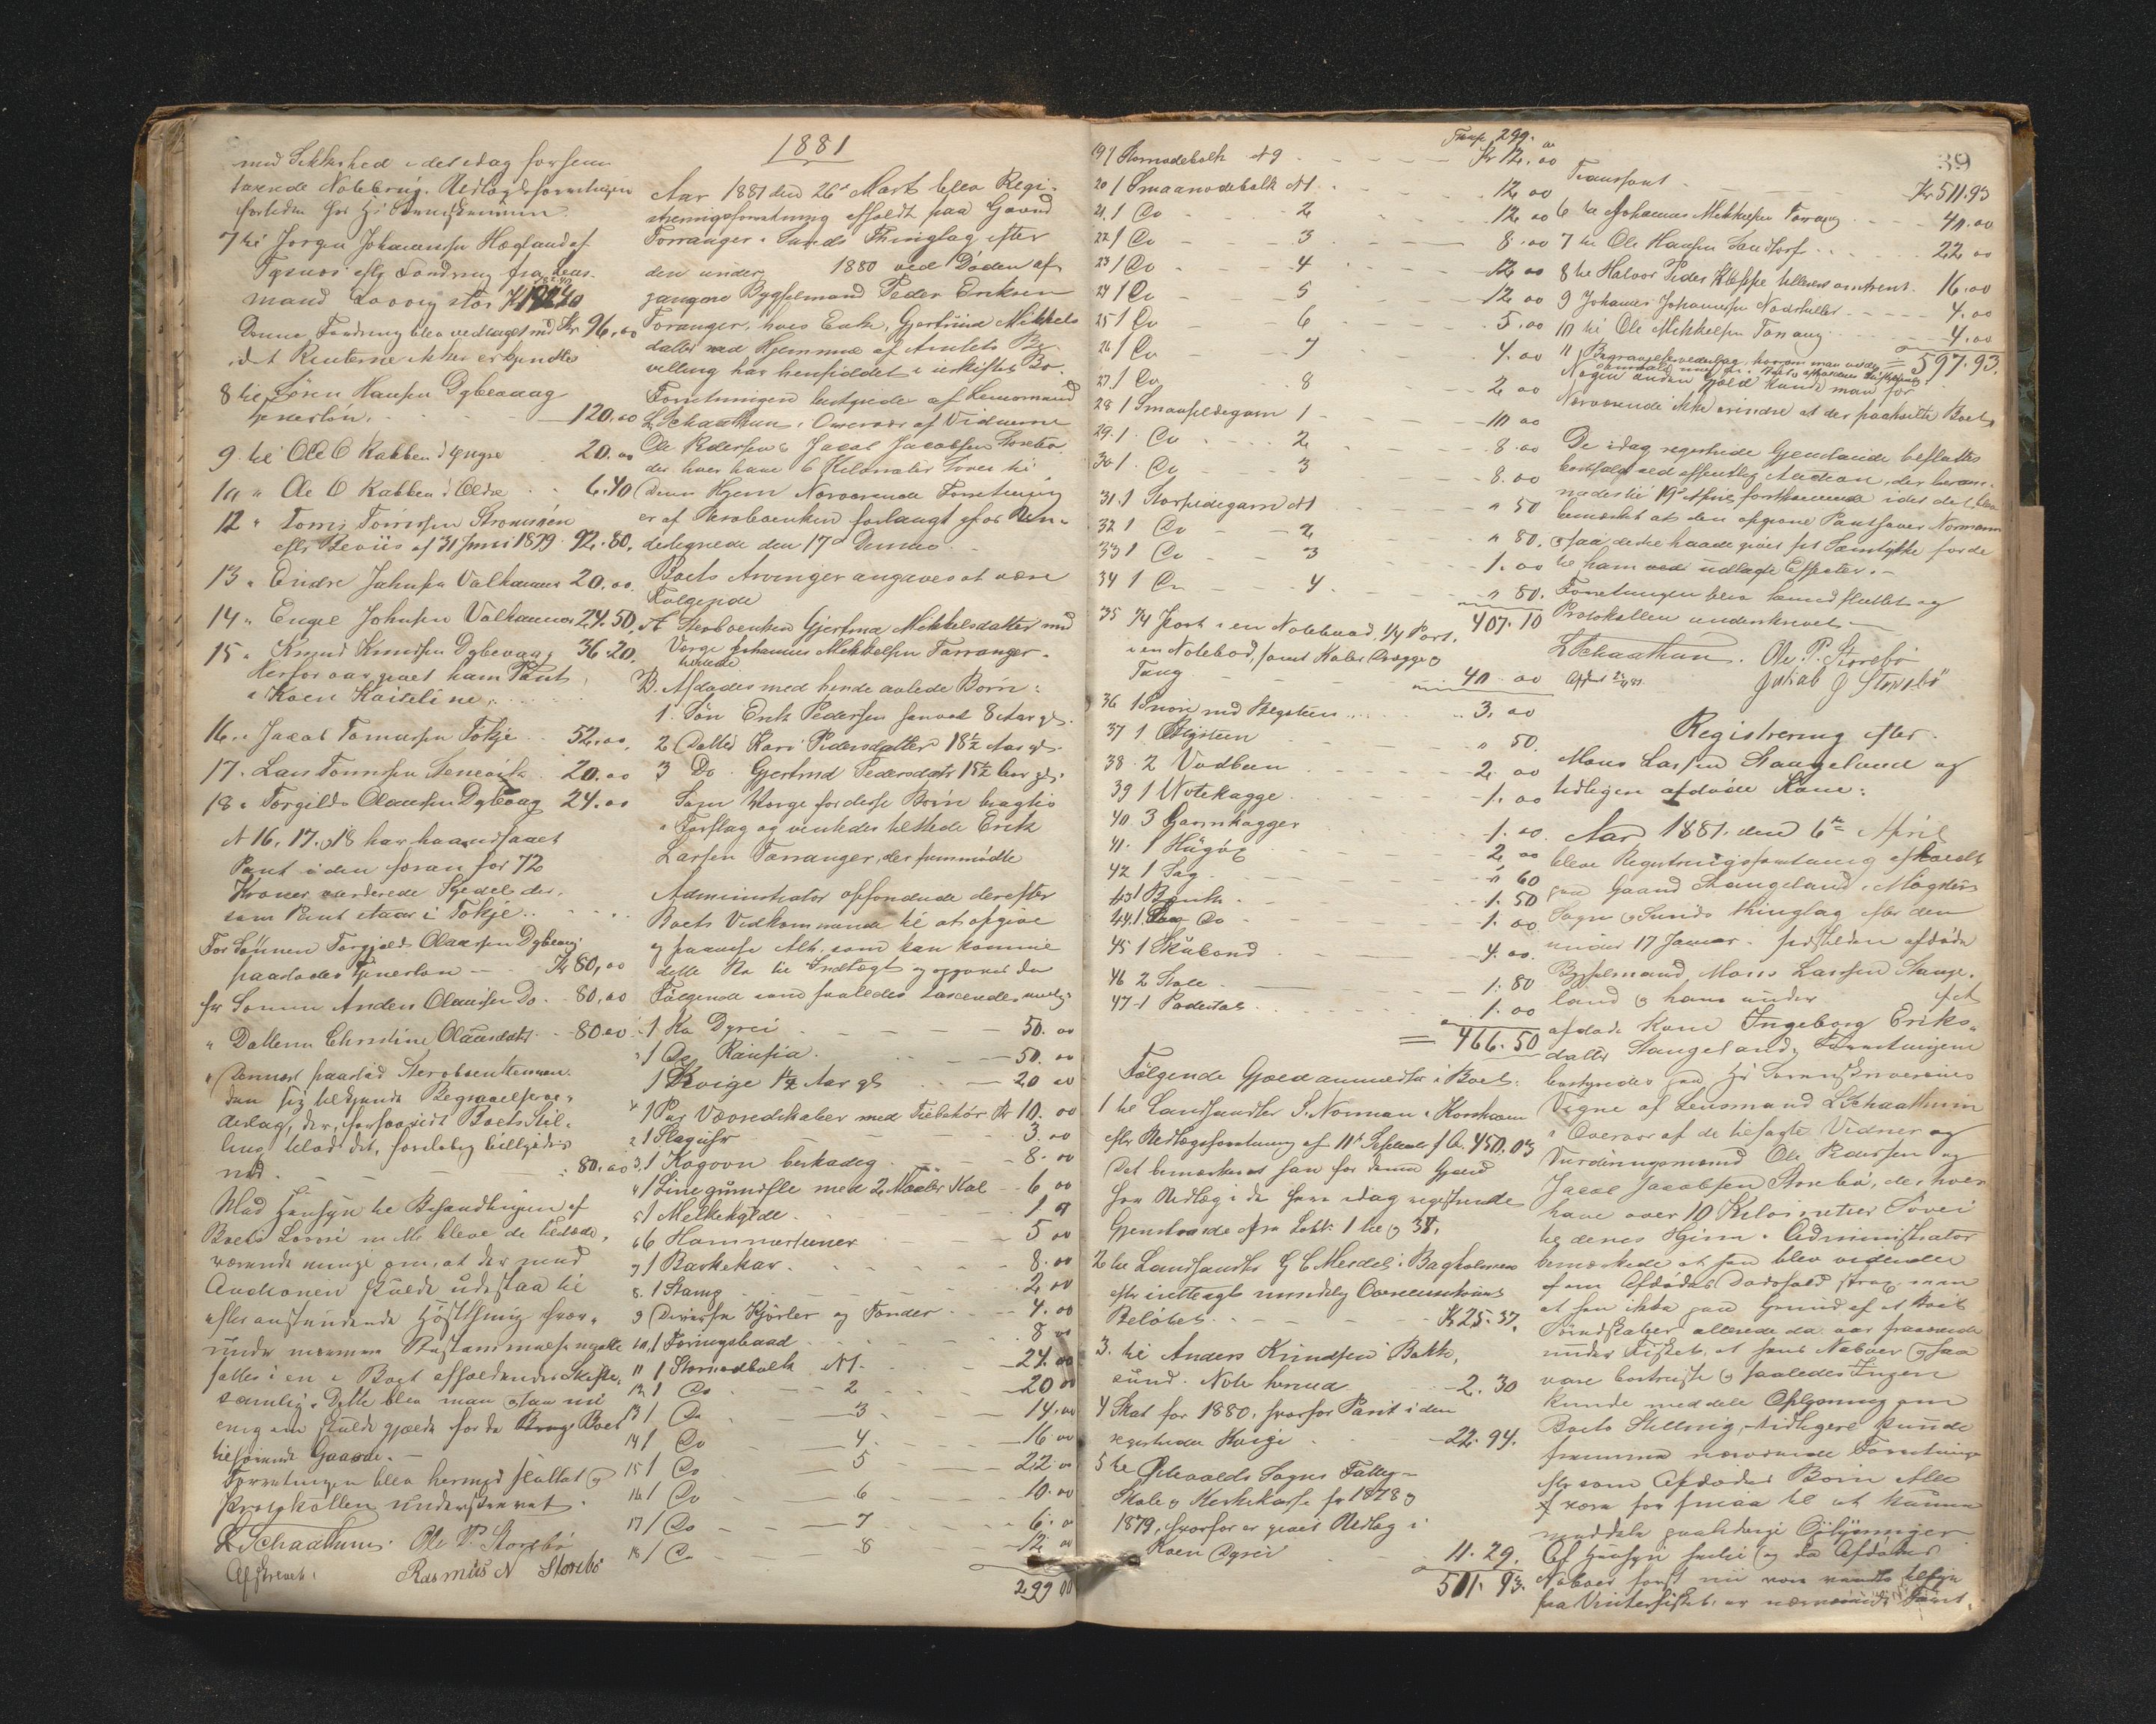 med Sikkerhed i det idag forsem
tarende Notebrug. Udlægsforretningen
forliden for Hr Sorenskriveren.
7 til Jørgen Johannesen Hægland af
Tysnæs eflg Fordring fra Lens-
mand Koovig stor Kr
Denne Fordring blev vedtaget med Kr 96,00
idet Renterne ikke erkjendtes
8 til Søren Hansen Dybevaag
tjenerløn. 120,00
9 til Ole O Rabben i yngre 20.00
10 " Ole O Rabben i Eldre 6.40
12 " Tørris Tørrissen Strømsøen
eflg Beviis af 31 Juni 1879. 92.80.
13 " Endre Johnsen Valhammer 20.00.
14 " Engel Johnsen Valhammer 24.50.
15 " Knud Knudsen Dybevaag 36.20.
Herfor var givet ham Pant
i Koen Kaiseline.
16. " Jacob Tomassen Tøkje 52.00.
17. Lars Tomassen Stenevik 20.00
18 " Torgilds Olaussen Dybevaag 24.00
N 16. 17. og 18 har haandfaaet
Pant i den foran for 72
Kroner værderede Hjedel der
som Pant staar i Tøkje.
For Sønnen Torgjels Olaussen Dybevaag
paastodes tjenerløn Kr 80,00
for Sønnen Anders Olaussen Do. 80,00
" Datteren Christine Olausdatter 80.00
Dennest paastod Sterboenkemanden
den sig tilkjende Begravelsesve-
derlag, der, forsaavidt Boets Stil-
ling tillod det, foreløbig billigedes
med 80.00
Med Hensyn til Behandlingen af
Boets Løsøre m M. bleve de tilstede-
værende enige om, at der med
Auctionen skulde udestaa til
efter anstundende Høstthing
under nærmere Bestemmelse ville
fattes i en i Boet afholdendes Skifte-
samling. Dette blev man ogsaa
enig om skulde gjælde for de Boet
tilhørende Gaarde.
Forretningen blev hermed sluttet og
Protokollen underskrevet.
L Schaathun. Ole P. Storebø
Afskrevet. Rasmus N Storebø
1881
Aar 1881 den 26de Marts blev Regi-
streringsforretning afholdt paa Gaard
Torranger i Sunds Thinglag efter
den under 1880 ved Døden af-
gangne Bygselmand Peder Eriksen
Toranger, hvis Enke, Gjertrud Mikkels
datter med Hjemmel af Amtets Be-
villing har hensiddet i uskiftet Bo.
Forretningen bestyrede af Lensmand
L Schaathun, i Overvær af Vidnerne
Ole Pedersen og Jacob Jacobsen Storebø
der hver have 6 Kilometer Sovei til
deres Hjem Nærværende Forretning
er af Sterboenken forlangt efter Ren-
delignede den 17de Dennes.
Boets Arvinger angaves at være
Følgende
A Sterboenken Gjertrud Mikkelsdatter med
Værge Johannes Mikkelsen Torranger.
tilstede
B. Afdødes med hende avlede Børn:
1. Søn Erik Pedersen henved 8 Aar gl.
2 Datter Kari Pedersdatter 18½ Aar gl.
3 Do. Gjertrud Pedersdatr 15½ Aar gl.
Som Værge for disse Børn bragtes
i Forslag og ventedes tilstede Erik
Larsen Torranger, der fremmødte
Administrator opfordrede derefter
Boets Vedkommende til at opgive
og paavise Alt, som kan komme
dette Bo til Indtægt og opgaves da
Følgende som saaledes taxeredes nemlig:
1 Ko Dyrei 50.00
2 1 Do Raufia 50.00
1 Kvige 1½ Aar gl 20 00
1 Par Vævredskaber med Tilbehør Kr 10.00
2 1 Slaguhr 3.00
3. 1 Kogovn beskadig 8.00
4 1 Linegrundsle med 2 Maaler Kol 6 00
5 1 Melkehylde 1.00
6 6 Hammertener 5 00
7 1 Barkekar 8.00
8. 1 Stamp 2 00
9 Diverse Kjørler og Tønder 4.00
10. 1 Føringsbaad 8 00
11 1 Stornodbolk N 1. 24.00
12. 1 Do 2 20 00
13 1 Do 3 14.00
14 1 Do 4. 16 00
15 1 Do 5 22.00
16 1 Do 6 10.00
17 1 Do 7 6.00
18 1 Do 8 12 00
299 00
Transp. 299.00
19 1 Stornodebolk N 9 Kr 12.00
20 1 Smaanodebolk N 1 12 00
21. 1 Do 2 12 00
22 1 Do 3 8.00
23 1 Do 4 12 00
24 1 Do 5 12.00
25 1 Do 6 5.00
26 1 Do 7 4.00
27. 1 Do 8 2 00
28 1 Smaasildegarn 1 10 00
29. 1 Do 2 8.00
30 1. Do 3 8.00
31. 1 Storsildegarn N 1 " 50
32 1 Do 2 " 80.
33 1 Do 3 1.00
34 1 Do 4 " 80.
407.10
35 1/4 Part i en Notebaad, 1/4 Part
i en Notebod, samt Kabel Drægge og
Toug 40.00
36 1 Snøre med Blysteen 3.00
37 1 Blysteen " 50.
38. 2 Vodbun 2 00
39 1 Notekagge 1.00
40 3 Garnkagger 1.00
41. 1 Hugøx 2 00
42 1 Sag " 60
43 1 Bænk 1. 50
44. 1 Do 1. 00
45 1 Skabond 4. 00
46 2 Stole 1. 80
47 1 Padestol 1. 00
= 466.50
Følgende Gjæld anmeldtes i Boet:
1 til Landhandler S. Norman i Korshavn
eflg Udlægsforretning af 11te September f A. 450.03
Det bemærkedes han for denne Gjæld
har Udlæg i de her idag registrerede
Gjenstande fra Lott 1 til og 38.
2 til Landhandler G C Mendel i Bagholmen
eflg indtægt mundtlig Overeenskomst
Beløbet Kr 25.37.
3. til Anders Knudsen Bakke-
sund. Note herved 2.30
4 Skat for 1880. hvorfor Pant i den
registrerede Kvige 22.94.
5 til Østevolds Sogns Fattig-
Skole og Kirkekasse for 1878 og
1879, hvorfor er givet Udlæg i
Koen Dyrei 11.29.
511.93.
39
Transport Kr 511.93
6 til Johannes Mikkelsen Torrang 40.00
7 til Ole Hansen Sandtorf 22 00
8 til Halvor Peder Kleppe tilleieet omtrent 16.00
9 Johannes Johannesen Nordheller 4.00
10 til Ole Mikkelsen Torrang 4.00
11 Begravelsesvederlag, hvorom man vidner
= 597.93.
Nogen anden Gjæld kunde man for
Nærværende ikke erindre at der paahvilte Boet.
De idag registrerede Gjenstande besluttes
bortsolgt ved offentlig Auction, der beram-
medes til 19de April førstkommende idet det blev
bemærket at den opgivne Panthaver Normann
ogsaa dertil havde givet sit Samtykke for de
til ham udlagte Effecter.
Forretningen blev hermed sluttet og
Protokollen underskrevet.
L Schaathun. Ole. P. Storebø
Jakob J Storebø
Registrering efter
Mons Larsen Stangeland og
tidligere afdøde Kone:
Aar 1881. den 6te April
bleve Registreringsforretning afholdt
paa Gaard Stangeland i Møgsters
Sogn og Sunds thinglag efter den
under 17 Januar sidstleden afdøde
Bygselmand Mons Larssen Stange-
land og hans under
afdøde Kone Ingeborg Eriks-
datter Stangeland. Forretningen
bestyredes paa Hr Sorenskriverens
Vegne af Lensmand L Schaathun
i Overvær af de tilsagte Vidner og
Vurderingsmænd Ole Pedersen og
Jacob Jacobsen Storebø, der hver
have over 10 Kilometer Sovei
til deres Hjem. Administrator
bemærkede at han blev vidende
om Afdødes Dødsfald strax men
at han ikke paa Grund af at Boets
Myndlinger allerede da var fraværende
under Fisket, at hans Naboer ogsaa
vare bortreiste og saaledes Ingen
kunde meddele Oplysning om
Boets Stilling, tidligere kunde
fremme nærværende Forretning
eftersom Afdødes Børn Alle
vare for smaa til at kunne
meddele paalidelige Oplysninger
Af Hensyn hertil og da Afdødes
Naboer først nu vare vendte tilbage
fra Vinterfisket, er nærværende Forret-